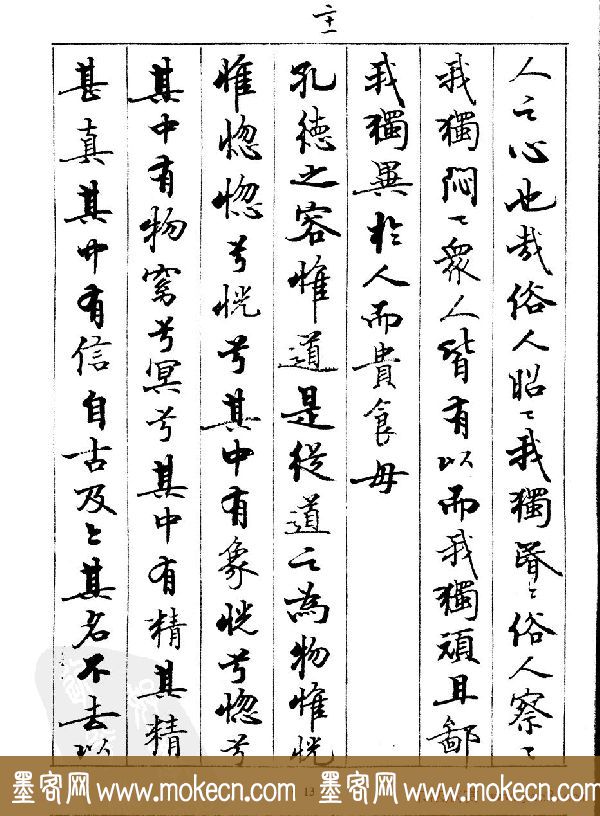 人之心也哉俗人昭〻我獨昬〻俗人察〻
我獨悶〻衆人皆有以而我獨頑且鄙
我獨異於人而貴食母
孔德之容惟道是從道之為物惟恍
惟惚惚兮恍兮其中有象恍兮惚兮
其中有物窈兮冥兮其中有精其精
甚真其中有信自古及今其名不去以
墨客网 www.mokecn.com 墨客网 www.mokecn.com
13